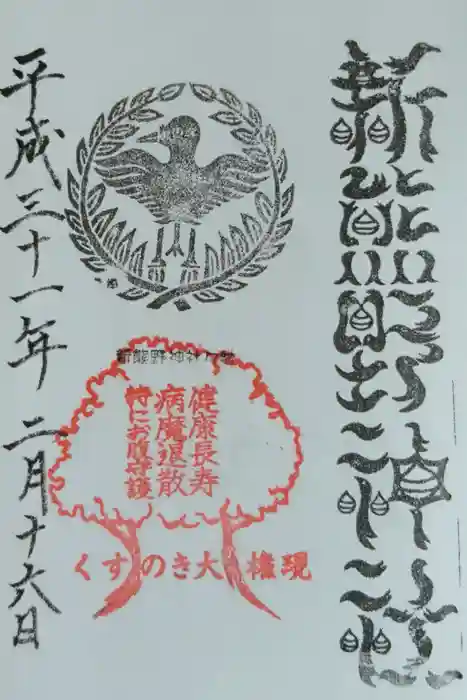 新熊野神社
新熊野神社
健康長寿
病魔退散
特にお腹守護
くすのき大権現
平成三十一年二月十六日